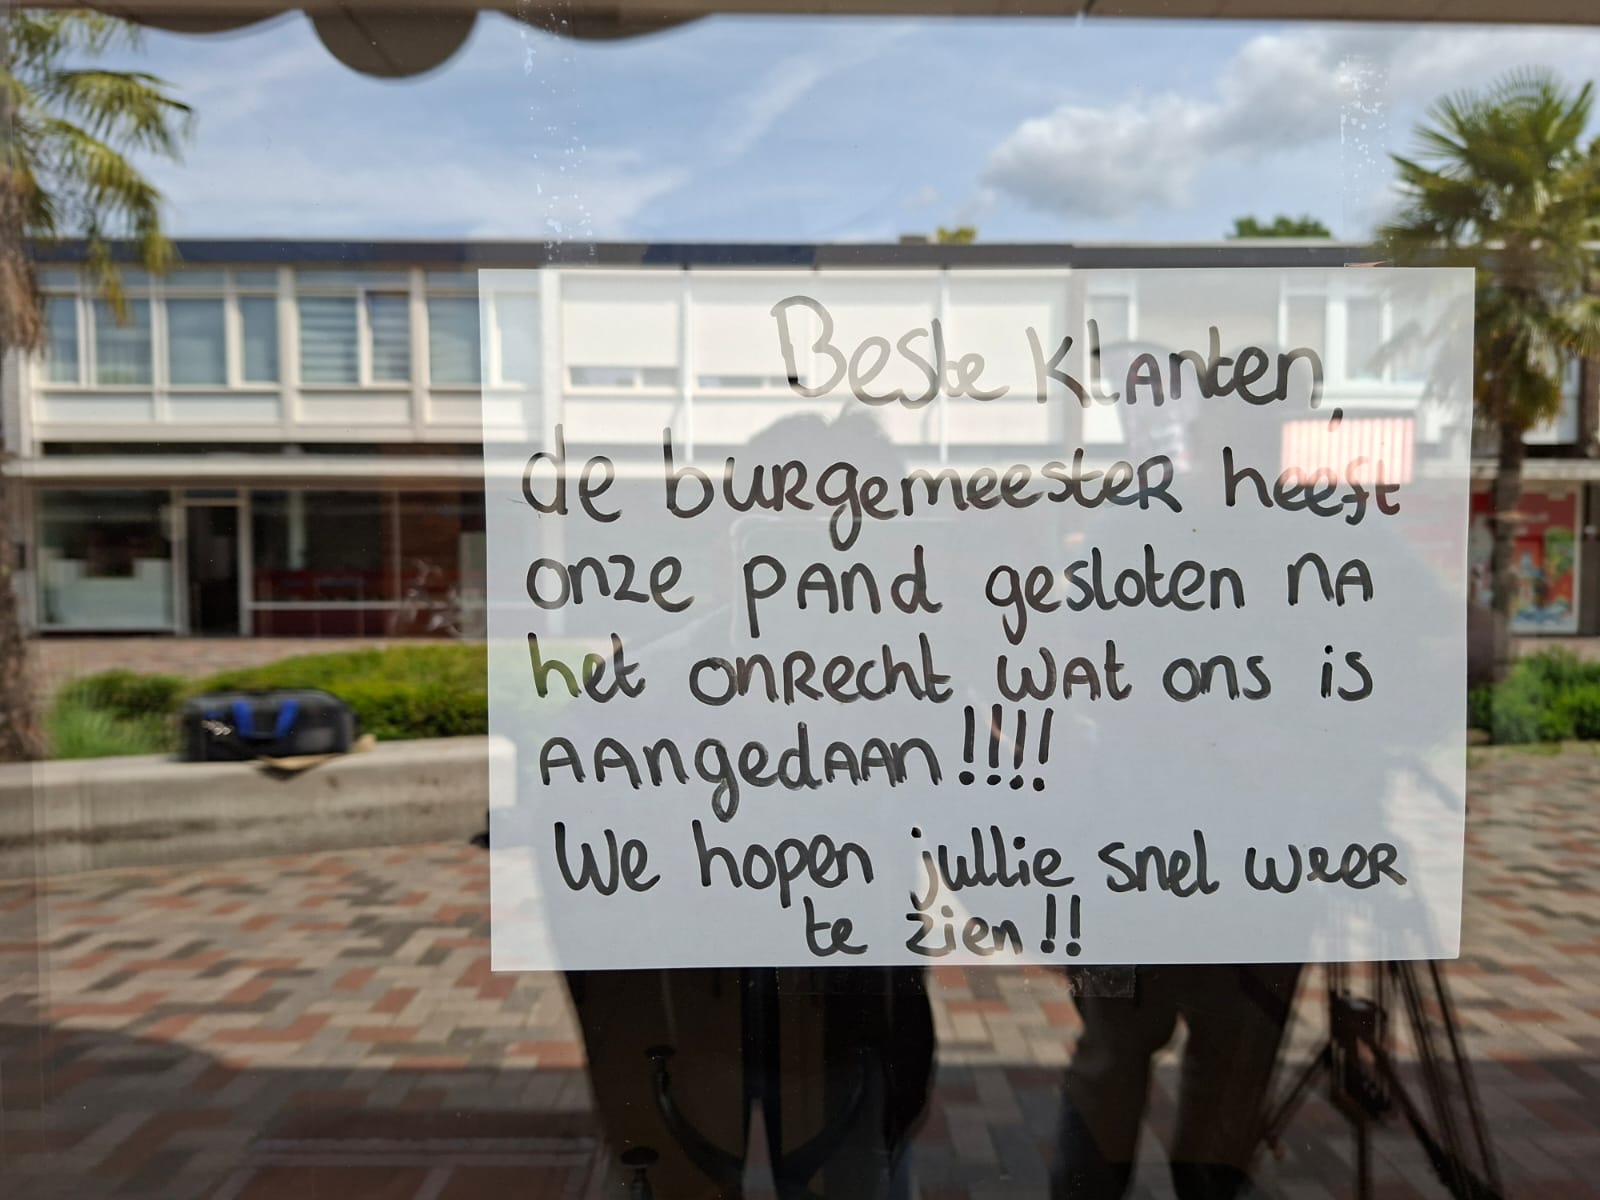 Beste Klanten,
de burgemeester heeft
onze pand gesloten na
het onrecht wat ons is
aangedaan!!!!
We hopen jullie snel weer
te zien!!